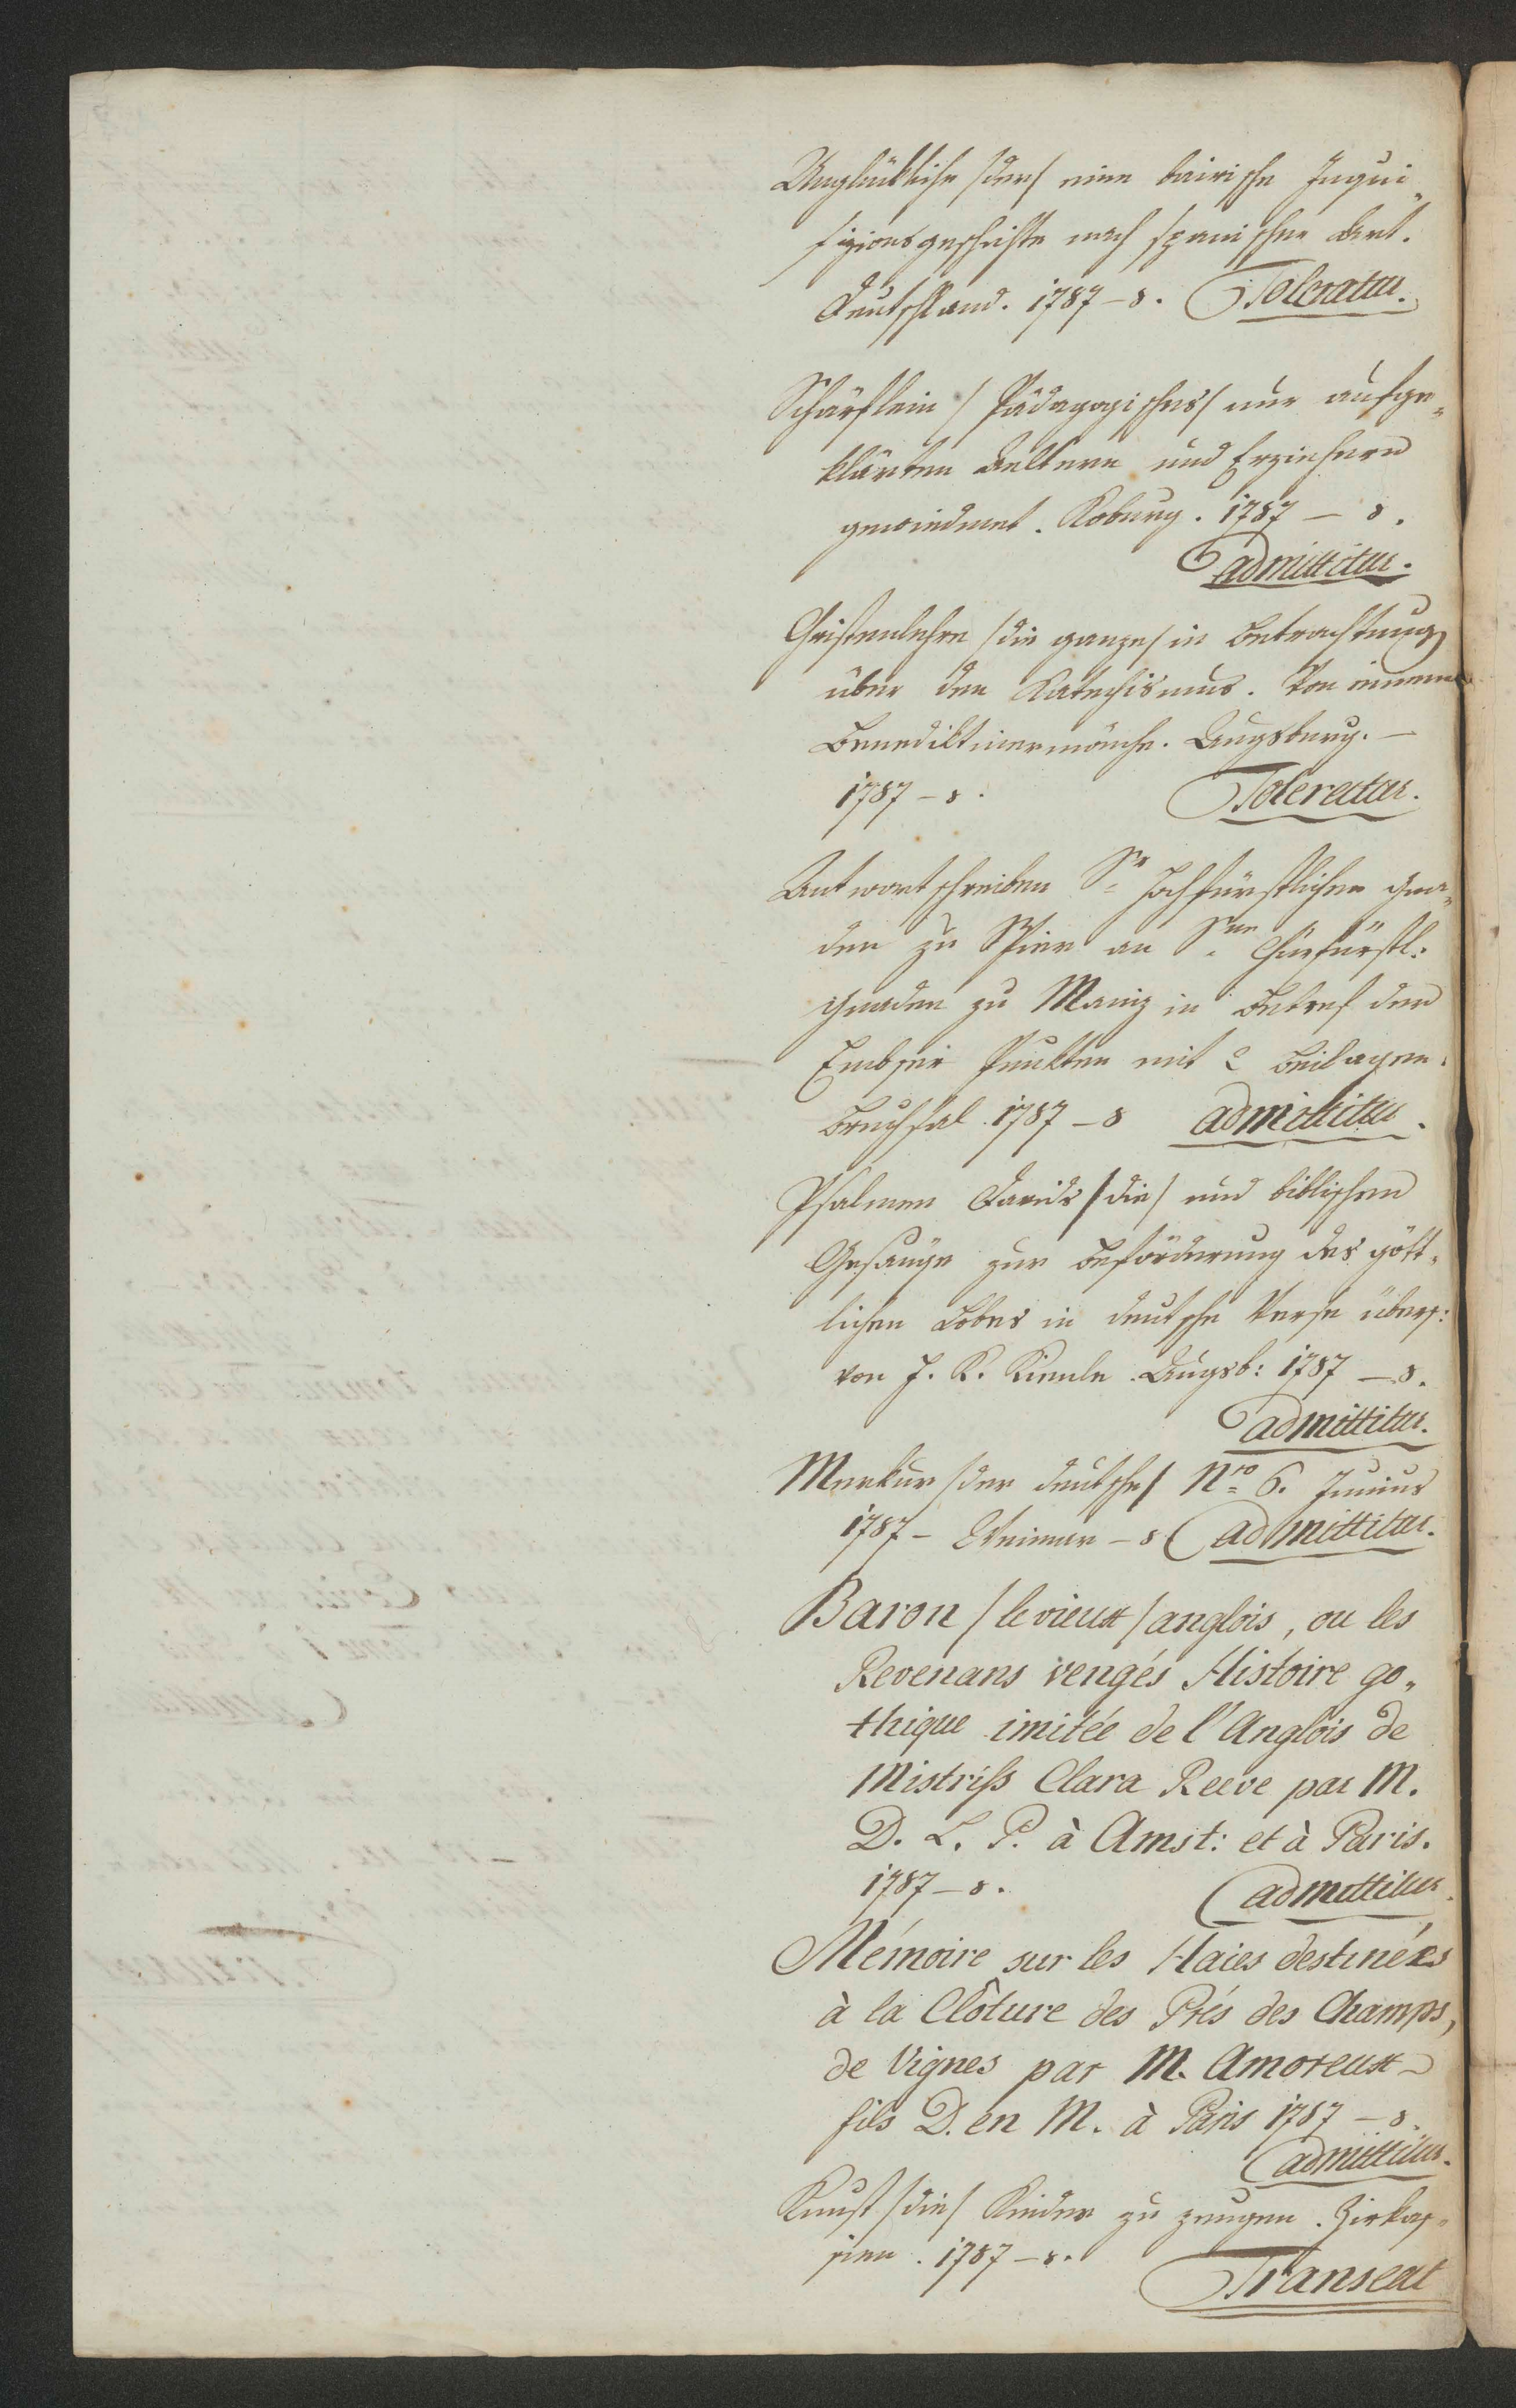 Unglückliche /der/ eine bairische Inqui„
sizionsgeschichte nach spanischer Art.
Deutschland. 1787 – 8. Toleratur.
Schärflein / Pädagogisches / nur aufge„
klärten Aeltern und Erziehern
gewiedmet. Koburg. 1787 – 8.
admittitur.
Christenlehre /die ganze/ in Betrachtung
über den Katechismus. Von einem
Benediktinermönche. Augsburg. –
1787 – 8. Toleratur.
Antwortschreiben Sr Hochfürstlichen Gna„
den zu Speier an Sne Churfürstl:
Gnaden zu Mainz in Betref der
Embser Punkten mit 2 Beilagen.
Bruchsal. 1787 – 8 admittitur.
Psalmen Davids /die/ und biblischen
Gesänge zur Beförderung des gött„
lichen Lobes in deutsche Verse übers:
von J. K. Kienle. Augsb: 1787 – 8.
admittitur.
Merkur /der deutsche/ Nro 6. Junius
1787 – Weimar – 8 admittitur.
Baron / le vieux / anglois, ou les
Revenans vengés Histoire go„
thique imitée de l'Anglois de
Mistriss Clara Reeve par M.
D. L. P. à Amst: et à Paris.
1787 – 8. admittitur.
Mémoire sur les Haies destinées
à la Clôture des Prés des Champs,
de Vignes par M. Amoreux
fils D. en M. à Paris 1787 – 8.
admittitur.
Kunst /die/ Kinder zu zeugen. Zirkas„
sien. 1787 – 8.
Transeat